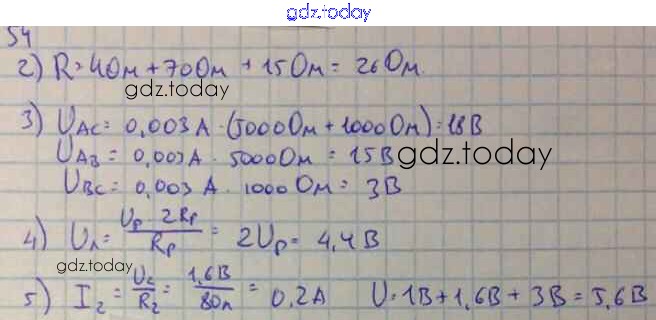 gdz.today
54
2) R = 4Ом + 70Ом + 15Ом = 26Ом.
gdz.today
3) UAC = 0,003A · (5000Ом + 1000Ом) = 18В
UAB = 0,003A · 5000Ом = 15В gdz.today
UBC = 0,003A · 1000Ом = 3В
4) Uл = Up · 2Rp / Rp = 2Up = 4,4В
gdz.today
5) I2 = U2 / R2 = 1,6В / 8Ом = 0,2А U = 1В + 1,6В + 3В = 5,6В
gdz.today